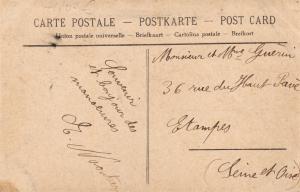 CARTE POSTALE – POSTKARTE – POST CARD
Union postale universelle – Briefkaart – Cartolina postale – Brefkort
Souvenir
et bonjour des
manoeuvres
Monsieur et Mme Guérin
36 rue du Haut Pavé
Etampes
(Seine et Oise)